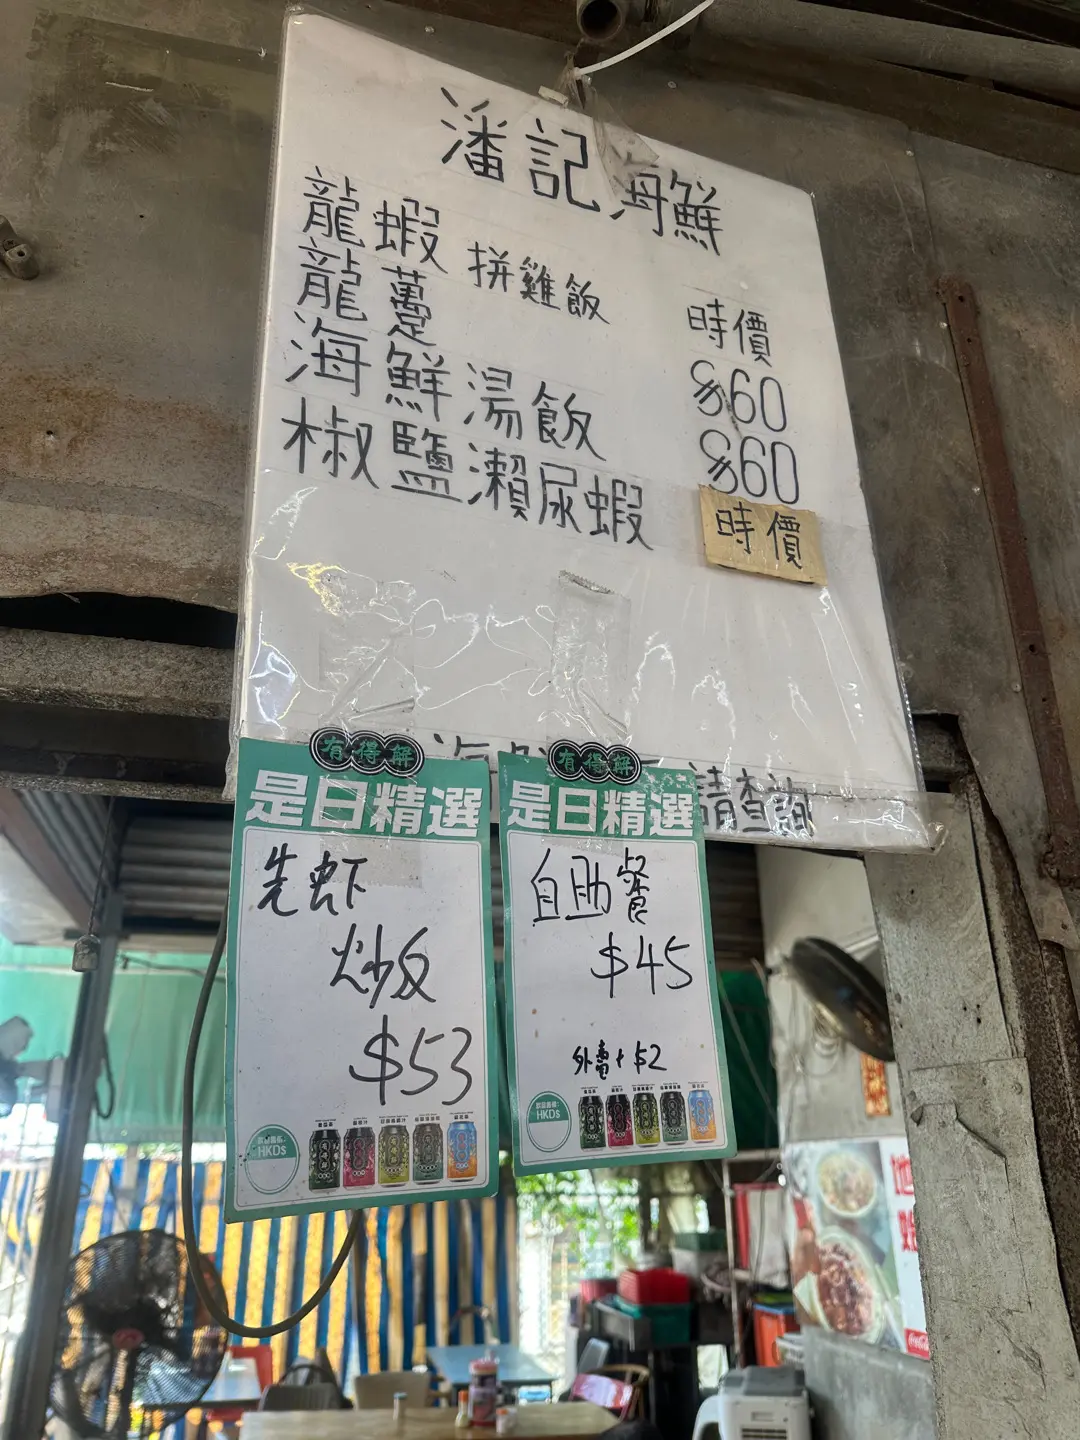 潘記海鮮
龍蝦 拼雞飯 時價
龍躉 $60
海鮮湯飯 $60
椒鹽瀨尿蝦 時價
海鮮
請查詢
有得解
是日精選
先蝦
炒飯
$53
飲品最低:
HKD$
有得解
是日精選
自助餐
$45
外賣+$2
HKD$